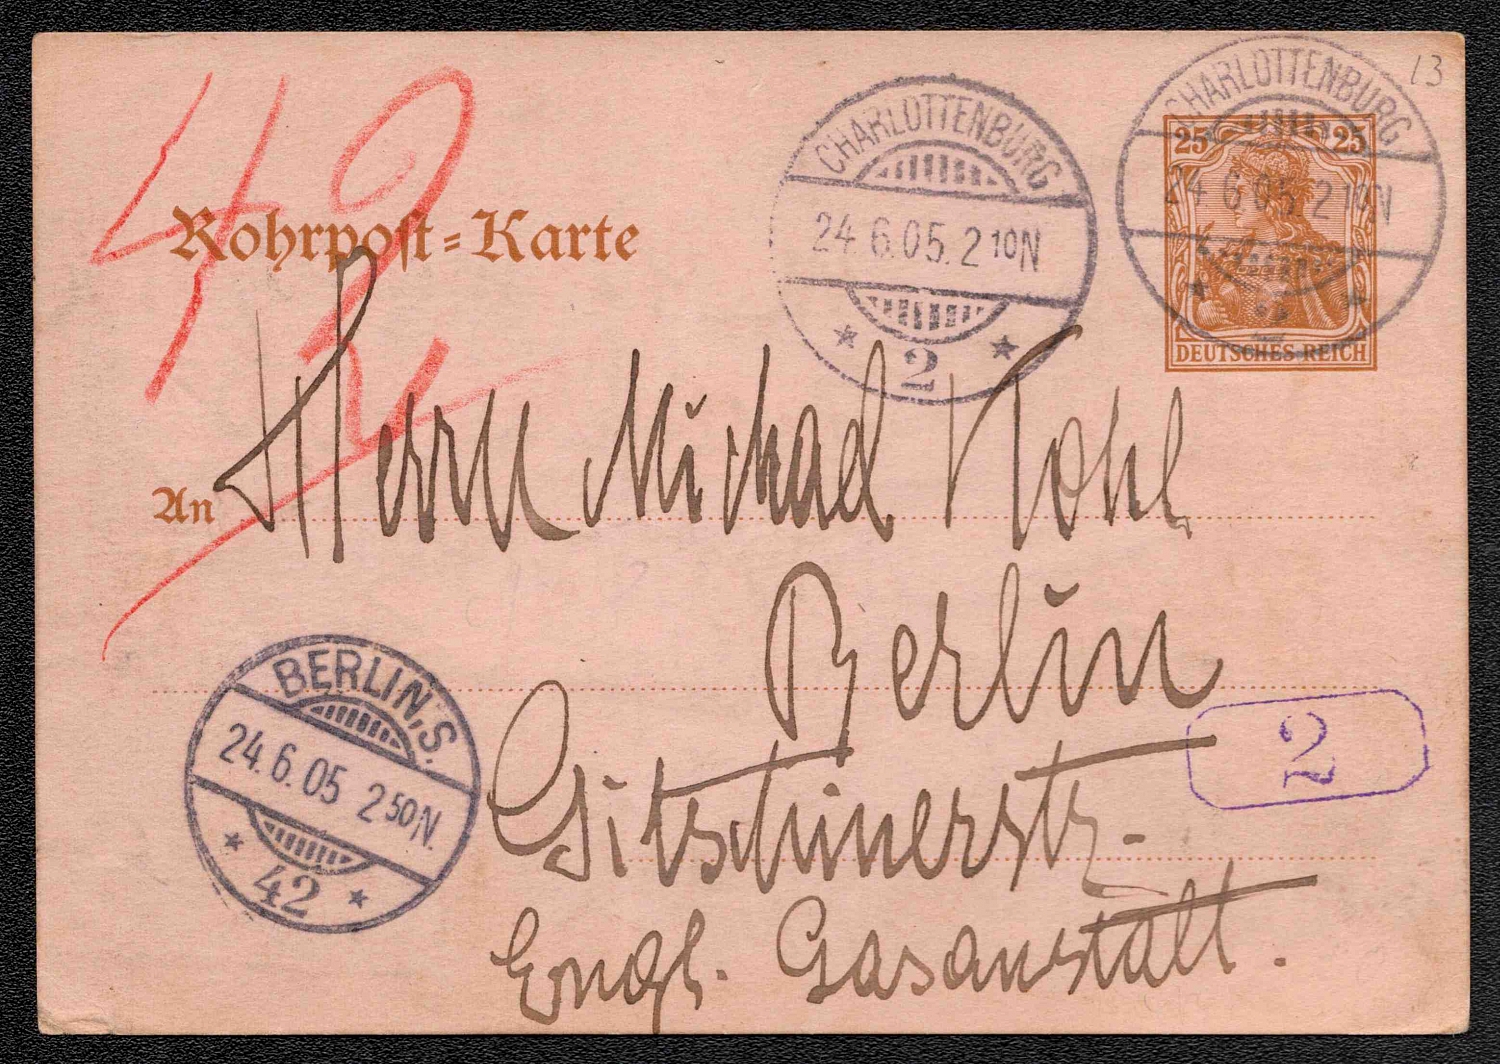 13
CHARLOTTENBURG
24.6.05.2 10N
* 2 *
CHARLOTTENBURG
24.6.05.2 10N
* 2 *
25 25
DEUTSCHES REICH
42
Rohrpost-Karte
An Herrn Michael Kohl
Berlin
Gitschinerstr.
Engl. Gasanstalt.
2
BERLIN, S.
24.6.05 2 50N.
* 42 *